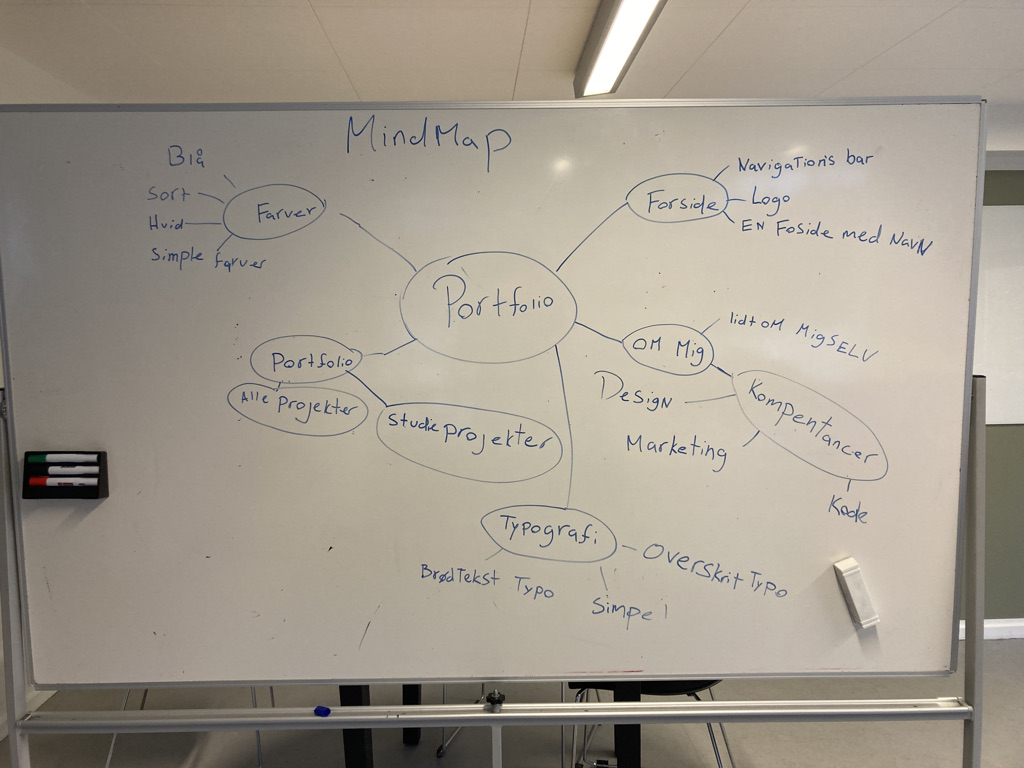 MindMap
Blå
Sort
Hvid
Simple farver
Farver
Forside
Navigations bar
Logo
EN Foside med NavN
Portfolio
OM Mig
lidt oM MigSELV
Kompentancer
DesigN
Marketing
Kode
Portfolio
Alle projekter
Studie projekter
Typografi
BrødTekst Typo
Simpel
Overskrit Typo